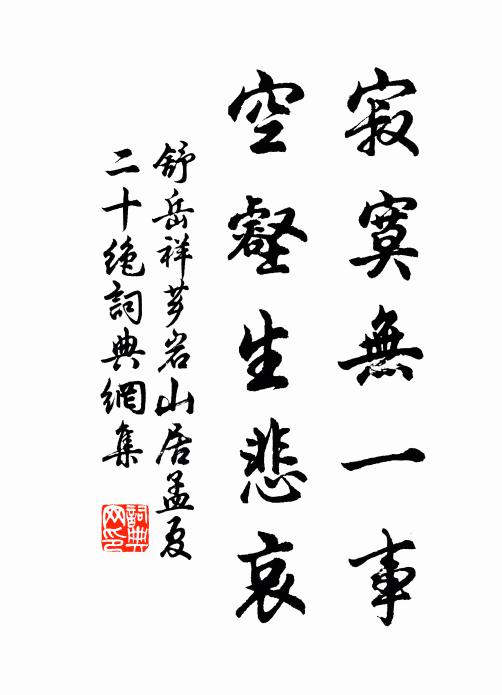 寂寞無一事
空壑生悲哀
舒岳祥夢岩山居孟夏
二十绝詞典網集
詞典
网印